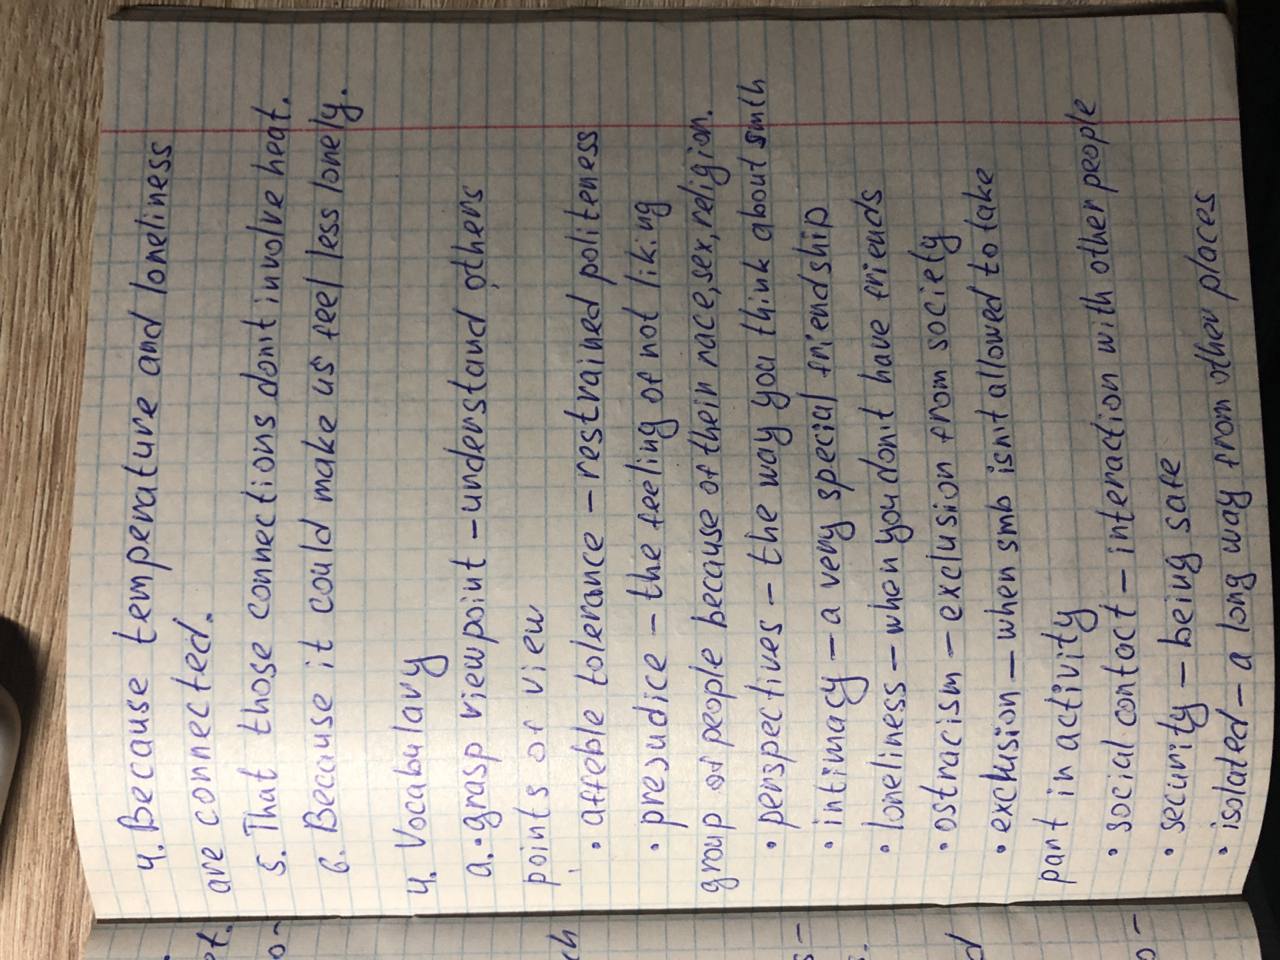 4. Because temperature and loneliness
are connected.
5. That those connections don't involve heat.
6. Because it could make us feel less lonely.
4. Vocabulary
a. • grasp viewpoint – understand others
points of view
• affeble tolerance – restrained politeness
• presudice – the feeling of not liking
group of people because of their race, sex, religion.
• perspectives – the way you think about smth
• intimacy – a very special friendship
• loneliness – when you don't have friends
• ostracism – exclusion from society
• exclusion – when smb isn't allowed to take
part in activity
• social contact – interaction with other people
• security – being safe
• isolated – a long way from other places